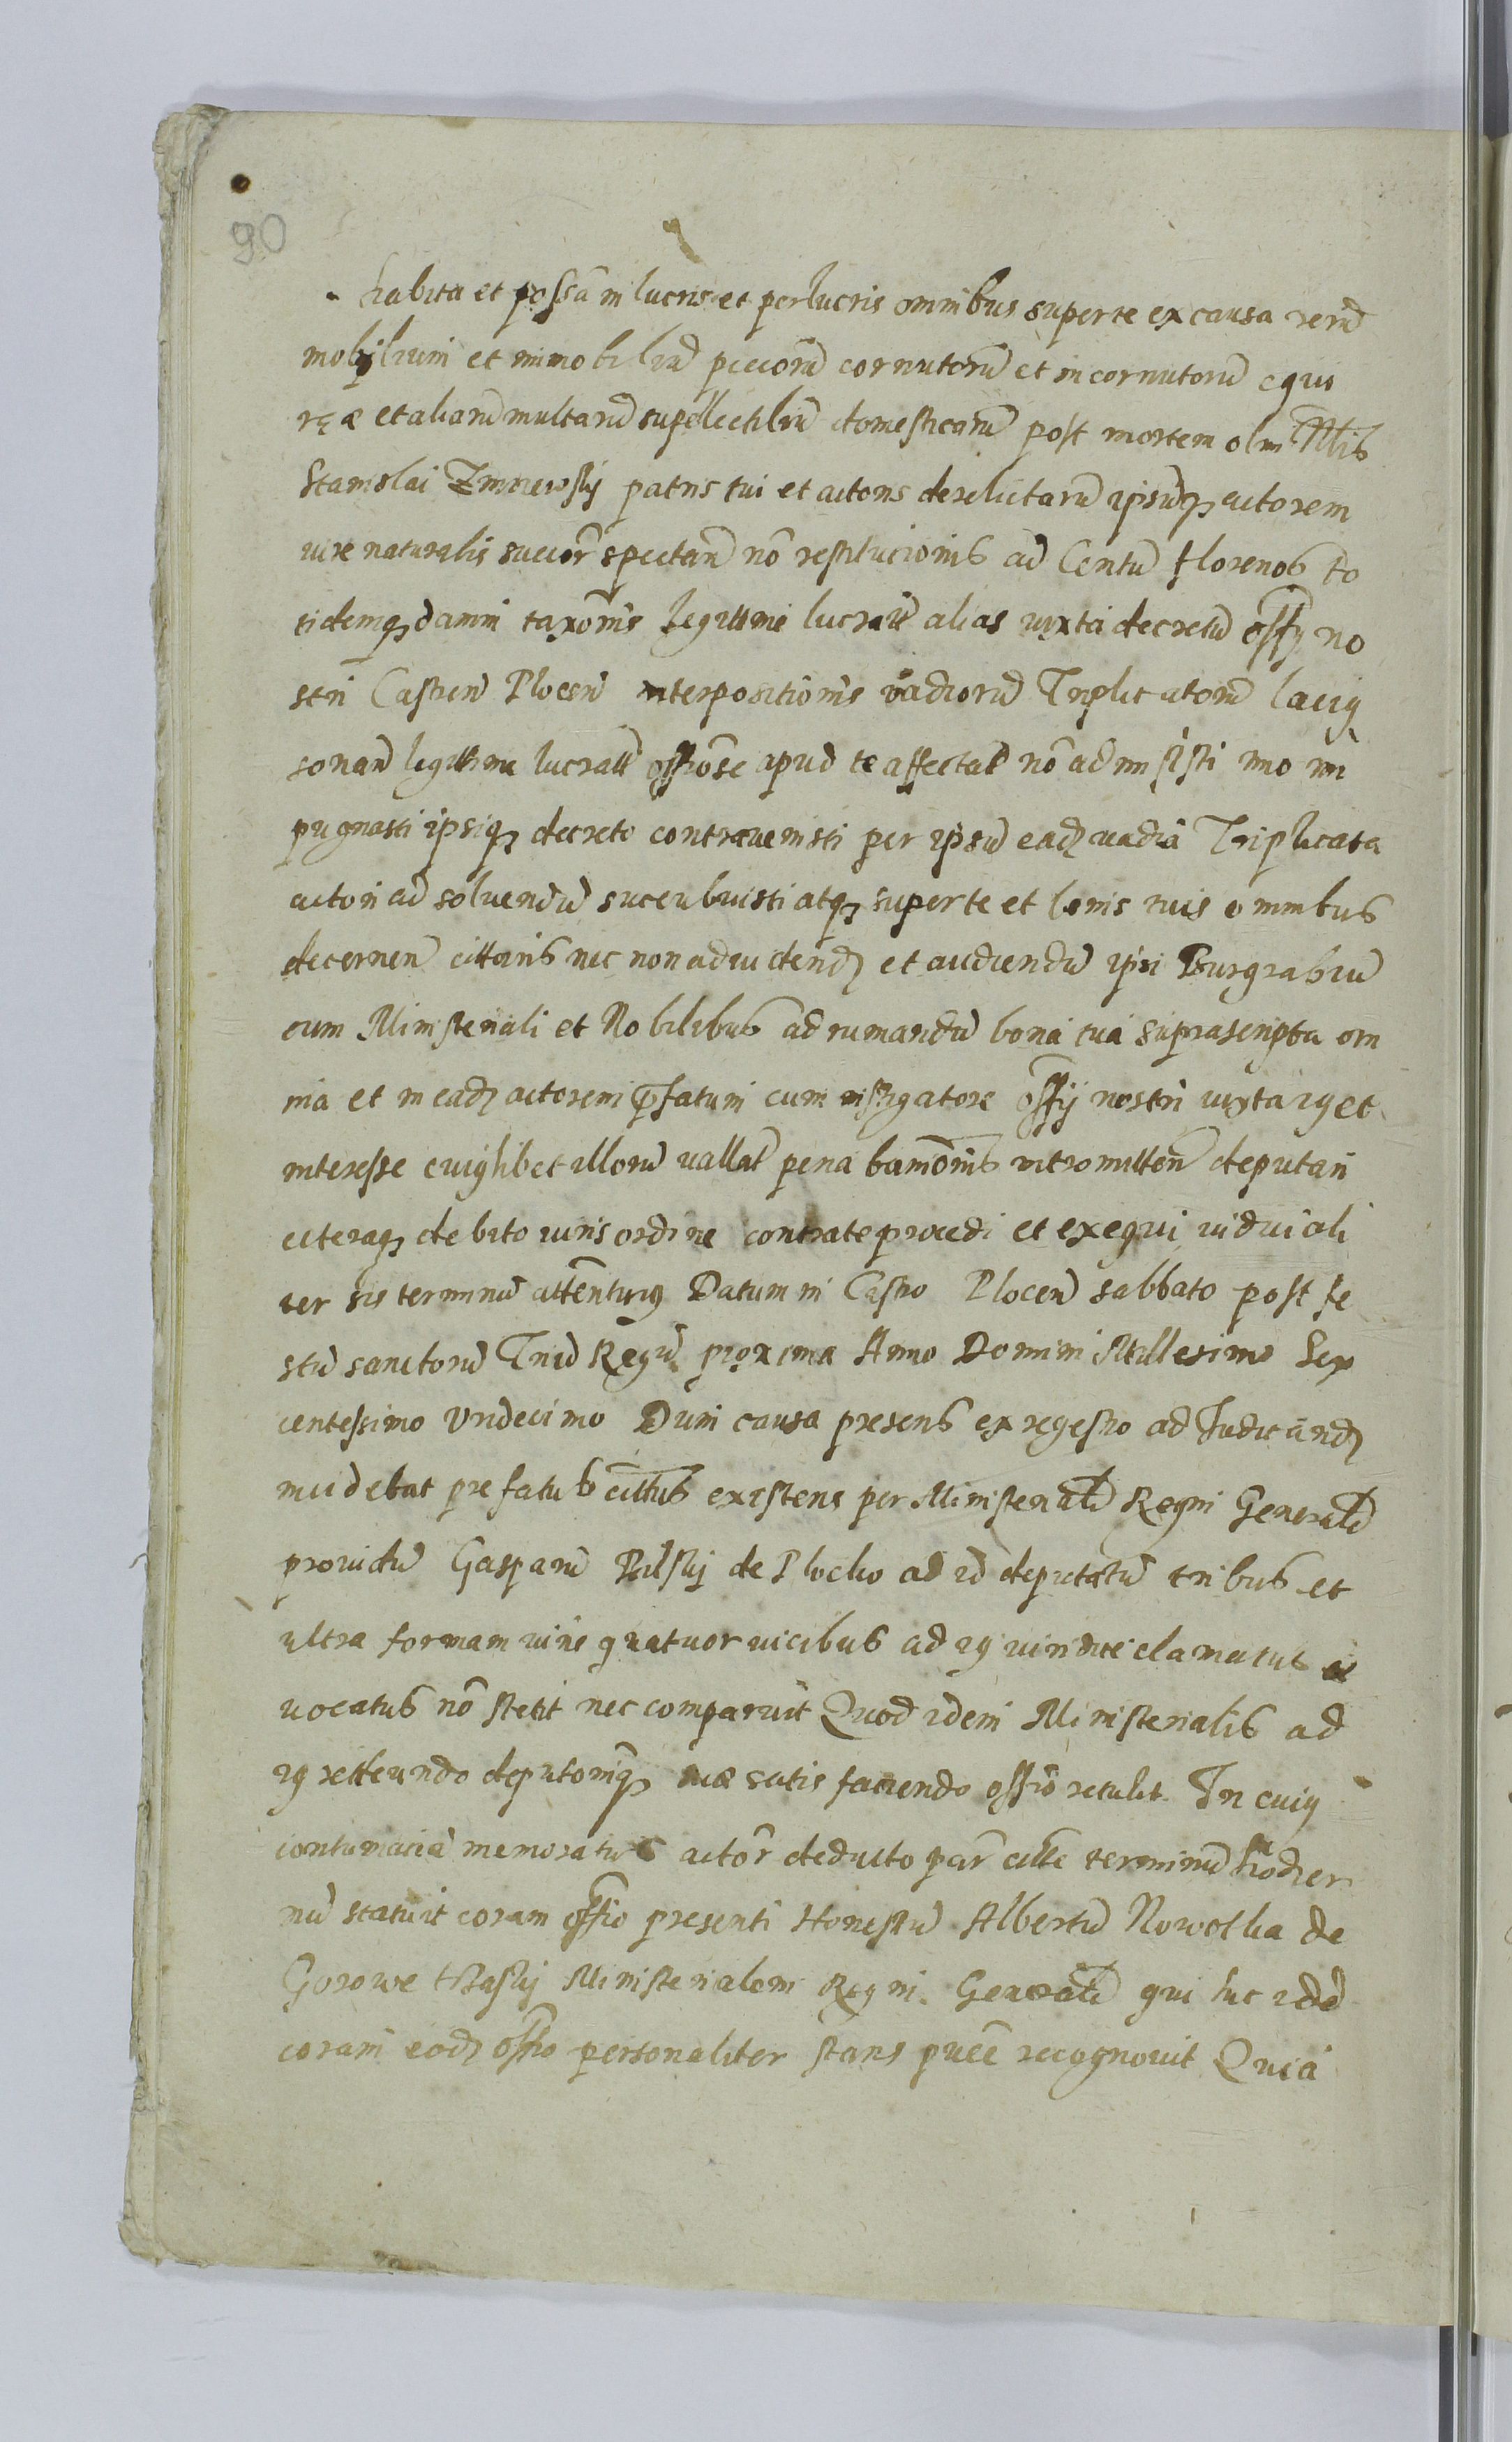 90
habita et possā in lucris et per lucris omnibus super te ex causa rerū
mobilium et immobiliū pecorū cornutorū et incornutorū equi
reæ et aliarū multarū supellectiliū domesticarū post mortem olim Nlis
Stanislai patris tui et actoris derelictarū ipsūq actorem
iure naturalis succōr spectan nō restitucionis ad Centū florenos to
tidemq damni taxōnis legittime lucratt alias iuxta decretū offy no
stri Castren Plocen interpositionis vadiorū Triplicatorū laciq
sonan legittime lucratt offiose apud te affectat nō admisisti imo im
pugnasti ipsiq decreto contravenisti per ipsū eadz vadia Triplicata
actori ad solvendū succubuisti atq super te et bonis tuis omnibus
decernen cittaris nec non ad videndz et audiendū ipsi Burgrabiū
cum Ministeriali et Nobilibus ad rumandū bona tua suprascripta om
nia et in eadz actorem pfatum cum instigatore offij nostri iuxta iq et
interesse cuiqlibet illorū vallat pena banōnis intromitten deputari
ceteraq debito iuris ordine contra te procedi et exequi iudiciali
ter sis terminū attenturq Datum in Castro Plocen sabbato post fe
stū sanctorū Triū Regū proxima Anno Domini Millesimo Sex
centessimo Undecimo Dum causa presens ex regestro ad Iudicandz
incidebat prefatus cittus existens per Ministeralē Regni Generalē
providū Gasparū Bilskj de Plocko ad id deputatū tribus et
ultra formam iuris quatuor vicibus ad iq iuridice clamatus et
vocatus nō stetit nec comparuit Quod idem Ministerialis ad
iq referendo deputōniq suæ satis faciendo offio retulit In cuiq
contumaciā memoratus actōr deducto par citte terminū hodier
nū statuit coram offio presenti Honestū Albertū Nowotka de
Gorowe Ministerialem Regni Generalē qui hic ibid
coram eodz offio personaliter stans puce recognovit Quia